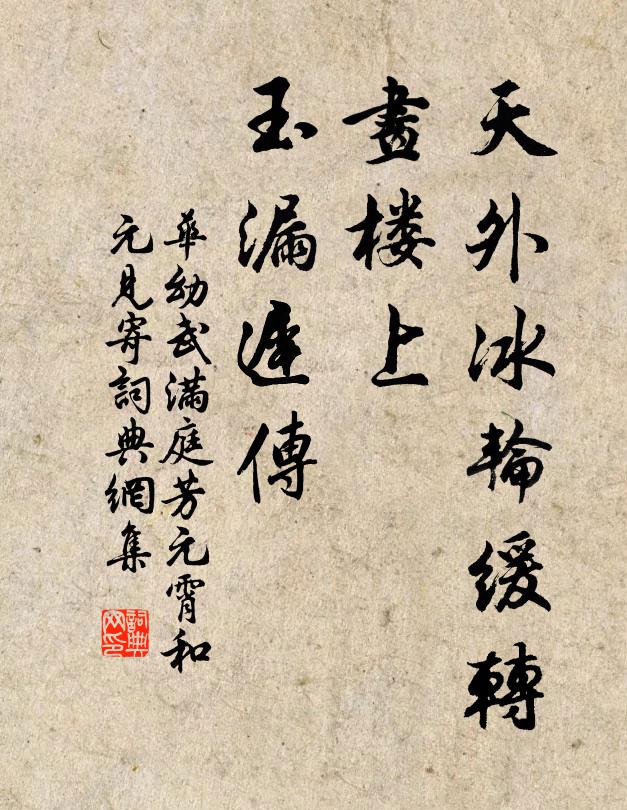 天外冰輪緩轉
畫楼上
玉漏遅傳
華幼武滿庭芳元霄和
元見寄詞典網集
詞典網印